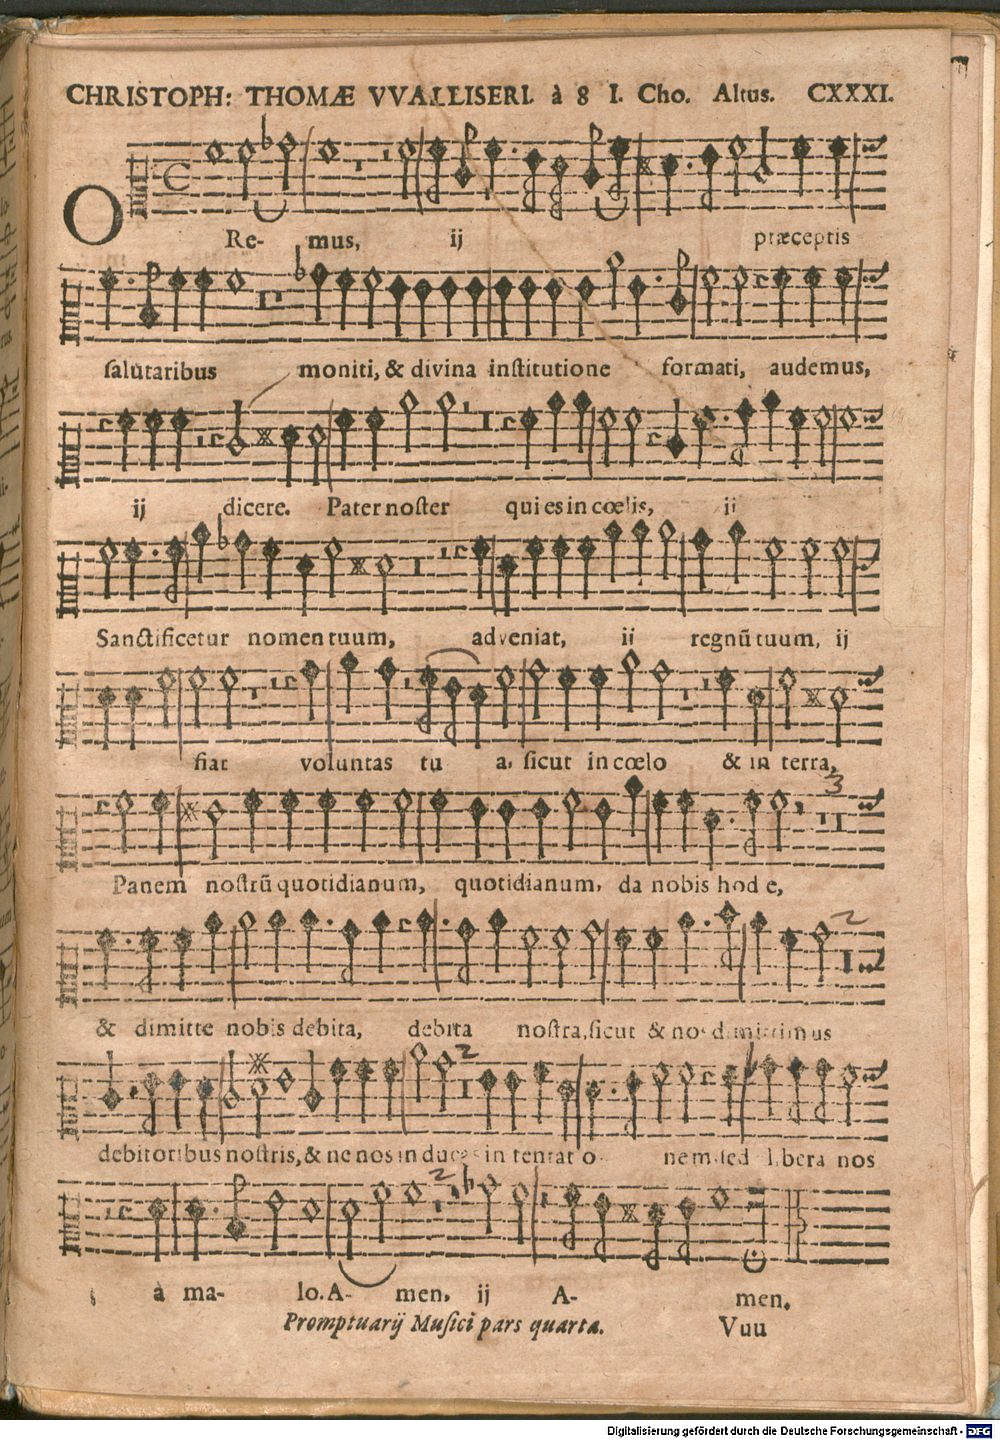 CHRISTOPH: THOMÆ VVALLISERI. à 8 I. Cho. Altus. CXXXI.
O
Re- mus, ij præceptis
ſalutaribus moniti, & divina inſtitutione formati, audemus,
ij dicere. Pater noſter qui es in cœlis, ij
Sanctificetur nomen tuum, adveniat, ii regnũ tuum, ij
fiat voluntas tu a, ſicut in cœlo & in terra,
3
Panem noſtrũ quotidianum, quotidianum, da nobis hod e,
2
& dimitte nobis debita, debita noſtra, ſicut & nos dimittimus
2
debitoribus noſtris, & ne nos in ducas in tentat o- nem ſed libera nos
2
à ma- lo. A- men, ij A- men.
Promptuarij Muſici pars quarta. Vuu
Digitalisierung gefördert durch die Deutsche Forschungsgemeinschaft - DFG